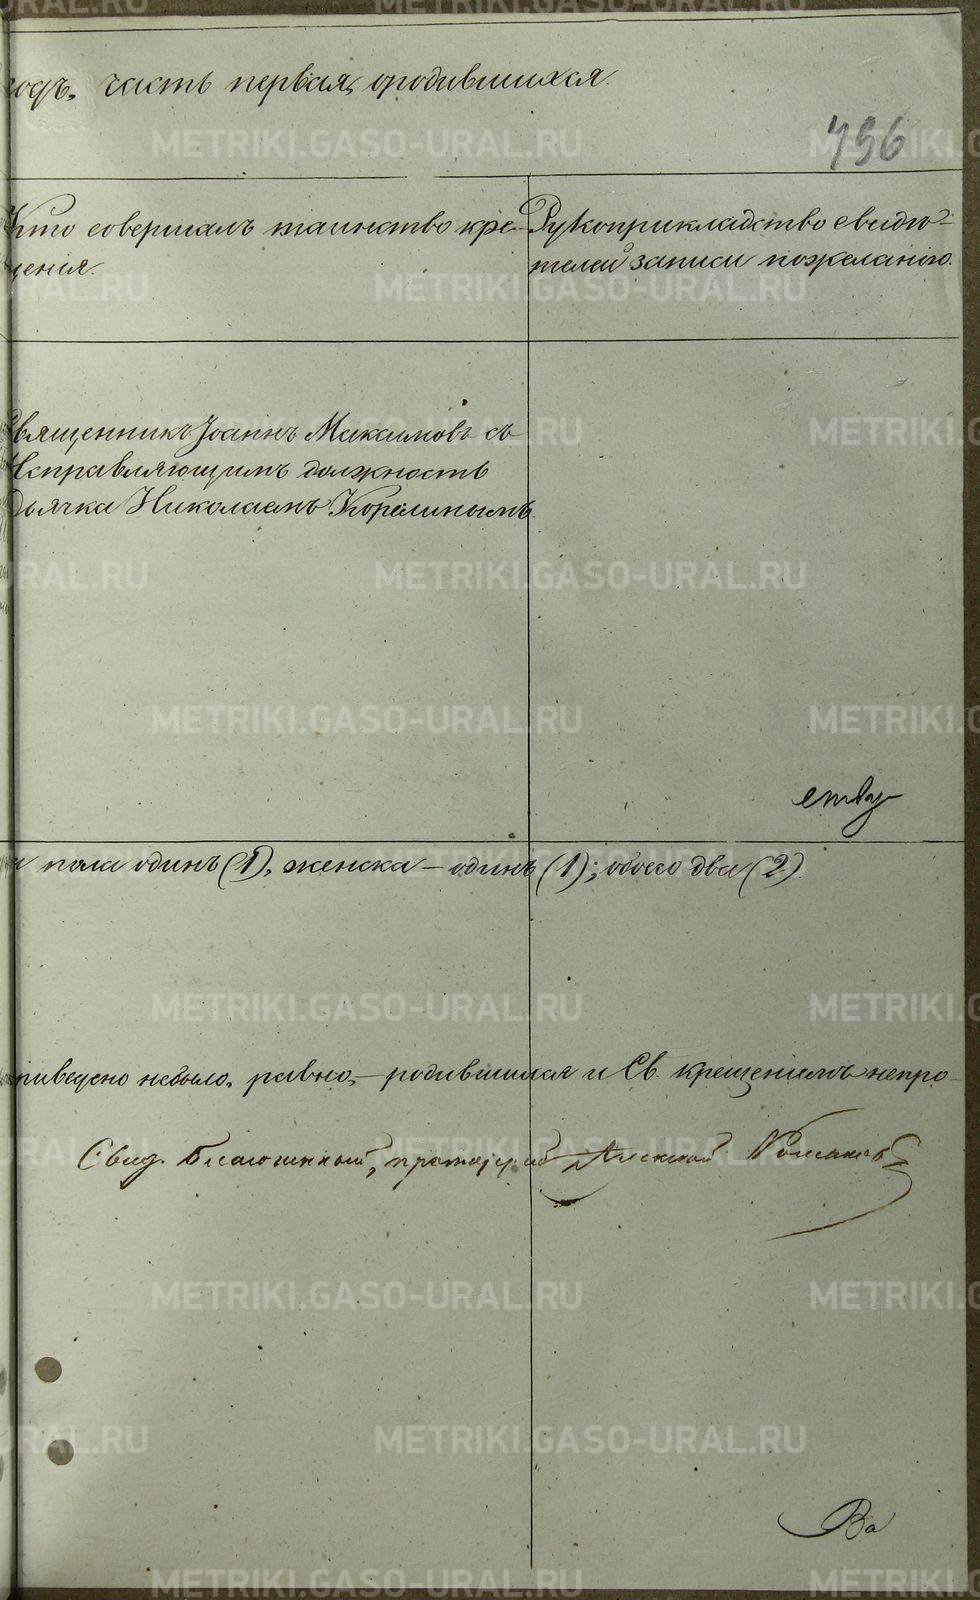 годъ, часть первая, о родившихся.
496
Кто совершалъ таинство кре-
щенія.
Рукоприкладство свидѣ-
телей записи по желанію.
Священникъ Іоаннъ Максимовъ съ
Исправляющимъ должность
дьячка Николаемъ Корелинымъ
ству
пола одинъ (1), женска – одинъ (1); обоего два (2).
приведено небыло, равно, – родившихся и Св. крещеніемъ непро-
Свид. Благочинный, протоіерей Алексей
Ва
METRIKI.GASO-URAL.RU